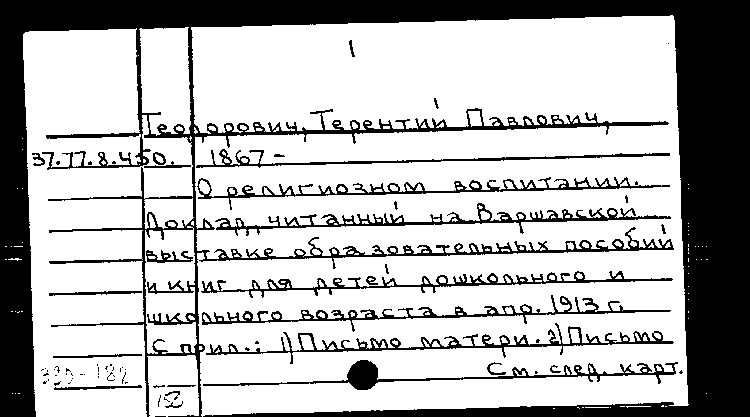 1
Теодорович, Терентий Павлович,
37.77.8.450. 1867 -
О религиозном воспитании.
Доклад, читанный на Варшавской
выставке образовательных пособий
и книг для детей дошкольного и
школьного возраста в апр. 1913 г.
С прил.: 1) Письмо матери. 2) Письмо
См. след. карт.
152